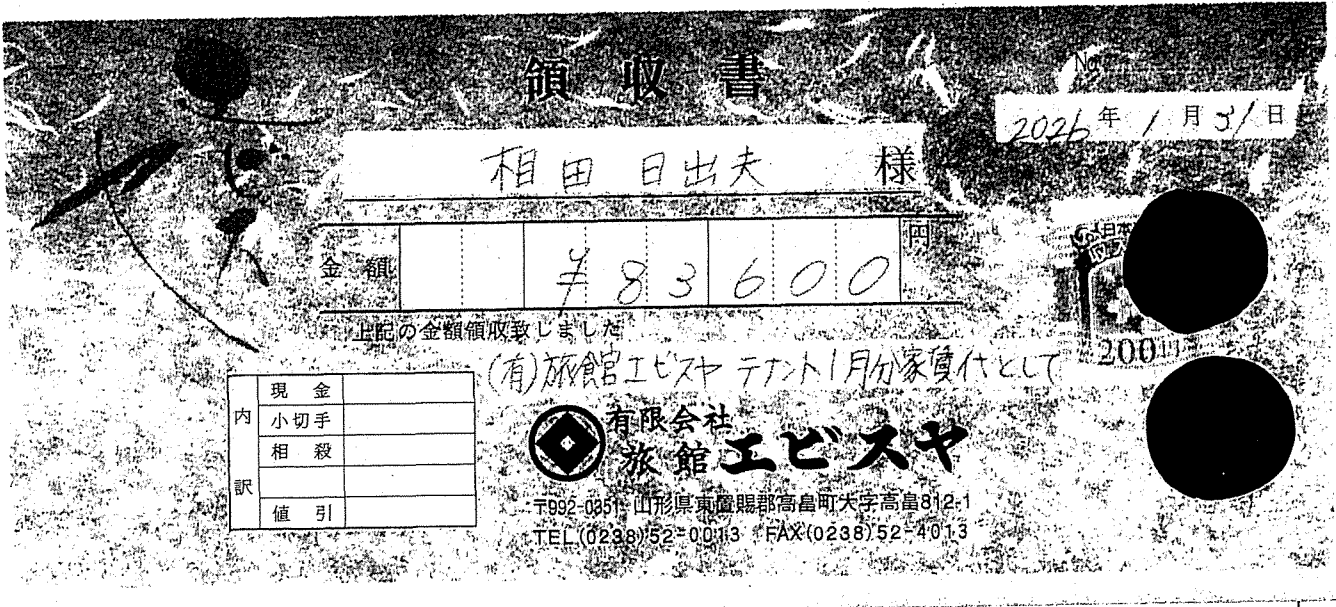 領収書
No.
2026年1月31日
相田 日出夫 様
金額 ¥83600円
上記の金額領収致しました
(有)旅館エビスヤ テナント1月分家賃代として
200円
内訳
現金
小切手
相殺
値引
有限会社
旅館エビスヤ
〒992-0351 山形県東置賜郡高畠町大字高畠812-1
TEL(0238)52-0013 FAX(0238)52-4013